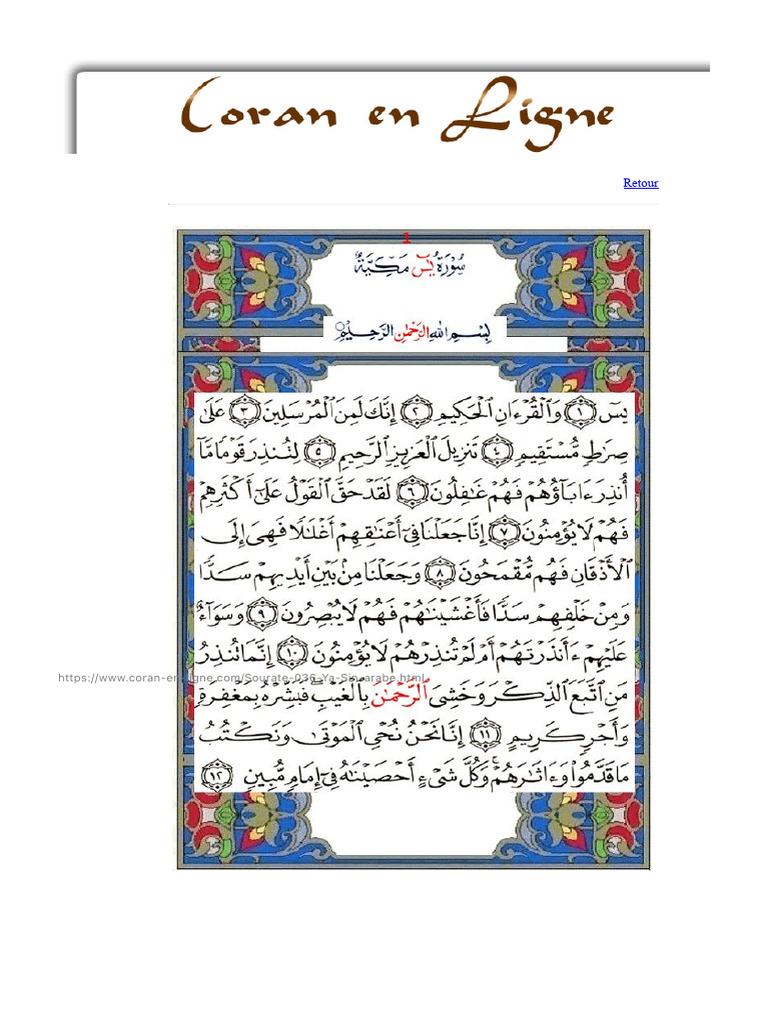 Coran en Ligne
Retour
1
سُورَةُ يسٓ مَكِيَّةٌ
بِسْمِ اللهِ الرَّحْمٰنِ الرَّحِيمِ
يسٓ ١ وَٱلْقُرْءَانِ ٱلْحَكِيمِ ٢ إِنَّكَ لَمِنَ ٱلْمُرْسَلِينَ ٣ عَلَىٰ
صِرَٰطٍ مُّسْتَقِيمٍ ٤ تَنزِيلَ ٱلْعَزِيزِ ٱلرَّحِيمِ ٥ لِتُنذِرَ قَوْمًا مَّآ
أُنذِرَ ءَابَآؤُهُمْ فَهُمْ غَٰفِلُونَ ٦ لَقَدْ حَقَّ ٱلْقَوْلُ عَلَىٰٓ أَكْثَرِهِمْ
فَهُمْ لَا يُؤْمِنُونَ ٧ إِنَّا جَعَلْنَا فِىٓ أَعْنَٰقِهِمْ أَغْلَٰلًا فَهِىَ إِلَى
ٱلْأَذْقَانِ فَهُم مُّقْمَحُونَ ٨ وَجَعَلْنَا مِنۢ بَيْنِ أَيْدِيهِمْ سَدًّا
وَمِنْ خَلْفِهِمْ سَدًّا فَأَغْشَيْنَٰهُمْ فَهُمْ لَا يُبْصِرُونَ ٩ وَسَوَآءٌ
عَلَيْهِمْ ءَأَنذَرْتَهُمْ أَمْ لَمْ تُنذِرْهُمْ لَا يُؤْمِنُونَ ١٠ إِنَّمَا تُنذِرُ
https://www.coran-en-ligne.com/Sourate-036-Ya-Sin-arabe.html
مَنِ ٱتَّبَعَ ٱلذِّكْرَ وَخَشِىَ ٱلرَّحْمَٰنَ بِٱلْغَيْبِ فَبَشِّرْهُ بِمَغْفِرَةٍ
وَأَجْرٍ كَرِيمٍ ١١ إِنَّا نَحْنُ نُحْىِ ٱلْمَوْتَىٰ وَنَكْتُبُ
مَا قَدَّمُوا۟ وَءَاثَٰرَهُمْ ۚ وَكُلَّ شَىْءٍ أَحْصَيْنَٰهُ فِىٓ إِمَامٍ مُّبِينٍ ١٢